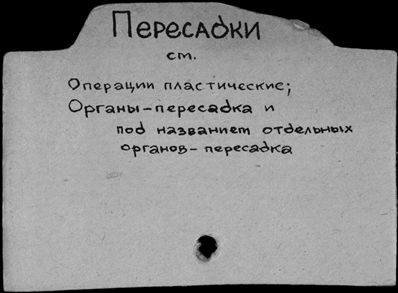 Пересадки
ст.
Операции пластические;
Органы-пересадка и
под названием отдельных
органов-пересадка